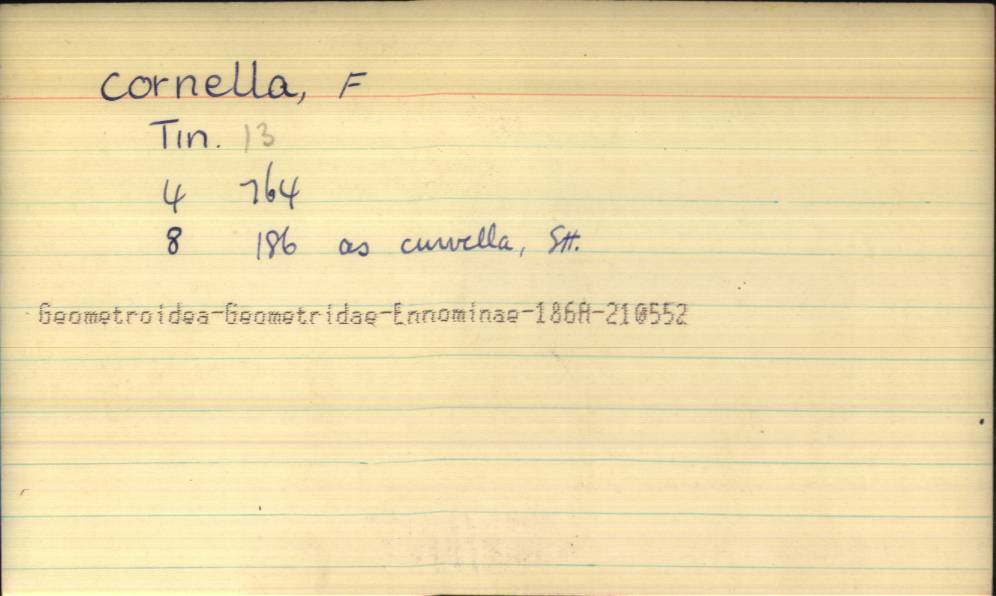 cornella, F
Tin. 13
4 764
8 186 as curvella, SH.
Geometroidea-Geometridae-Ennominae-186A-210552